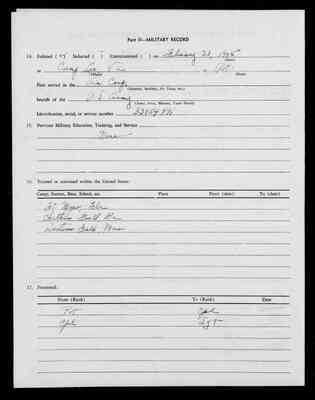 Part II—MILITARY RECORD
14. Enlisted ( ) Inducted ( ) Commissioned ( ) on February 21, 19
(Date)
at Camp Lee Va. as Pvt.
(Place) (Rank)
First served in the Air Corps
(Infantry, Artillery, Air Corps, etc.)
branch of the U. S. Army
(Army, Navy, Marines, Coast Guard)
Identification, serial, or service number
15. Previous Military Education, Training, and Service
None
16. Trained or stationed within the United States:
Camp, Station, Base, School, etc. Place From (date) To (date)
Ft. Myers, Fla.
Field
Field, Mass
17. Promoted:
From (Rank) To (Rank) Date
Pvt Cpl
Cpl Sgt